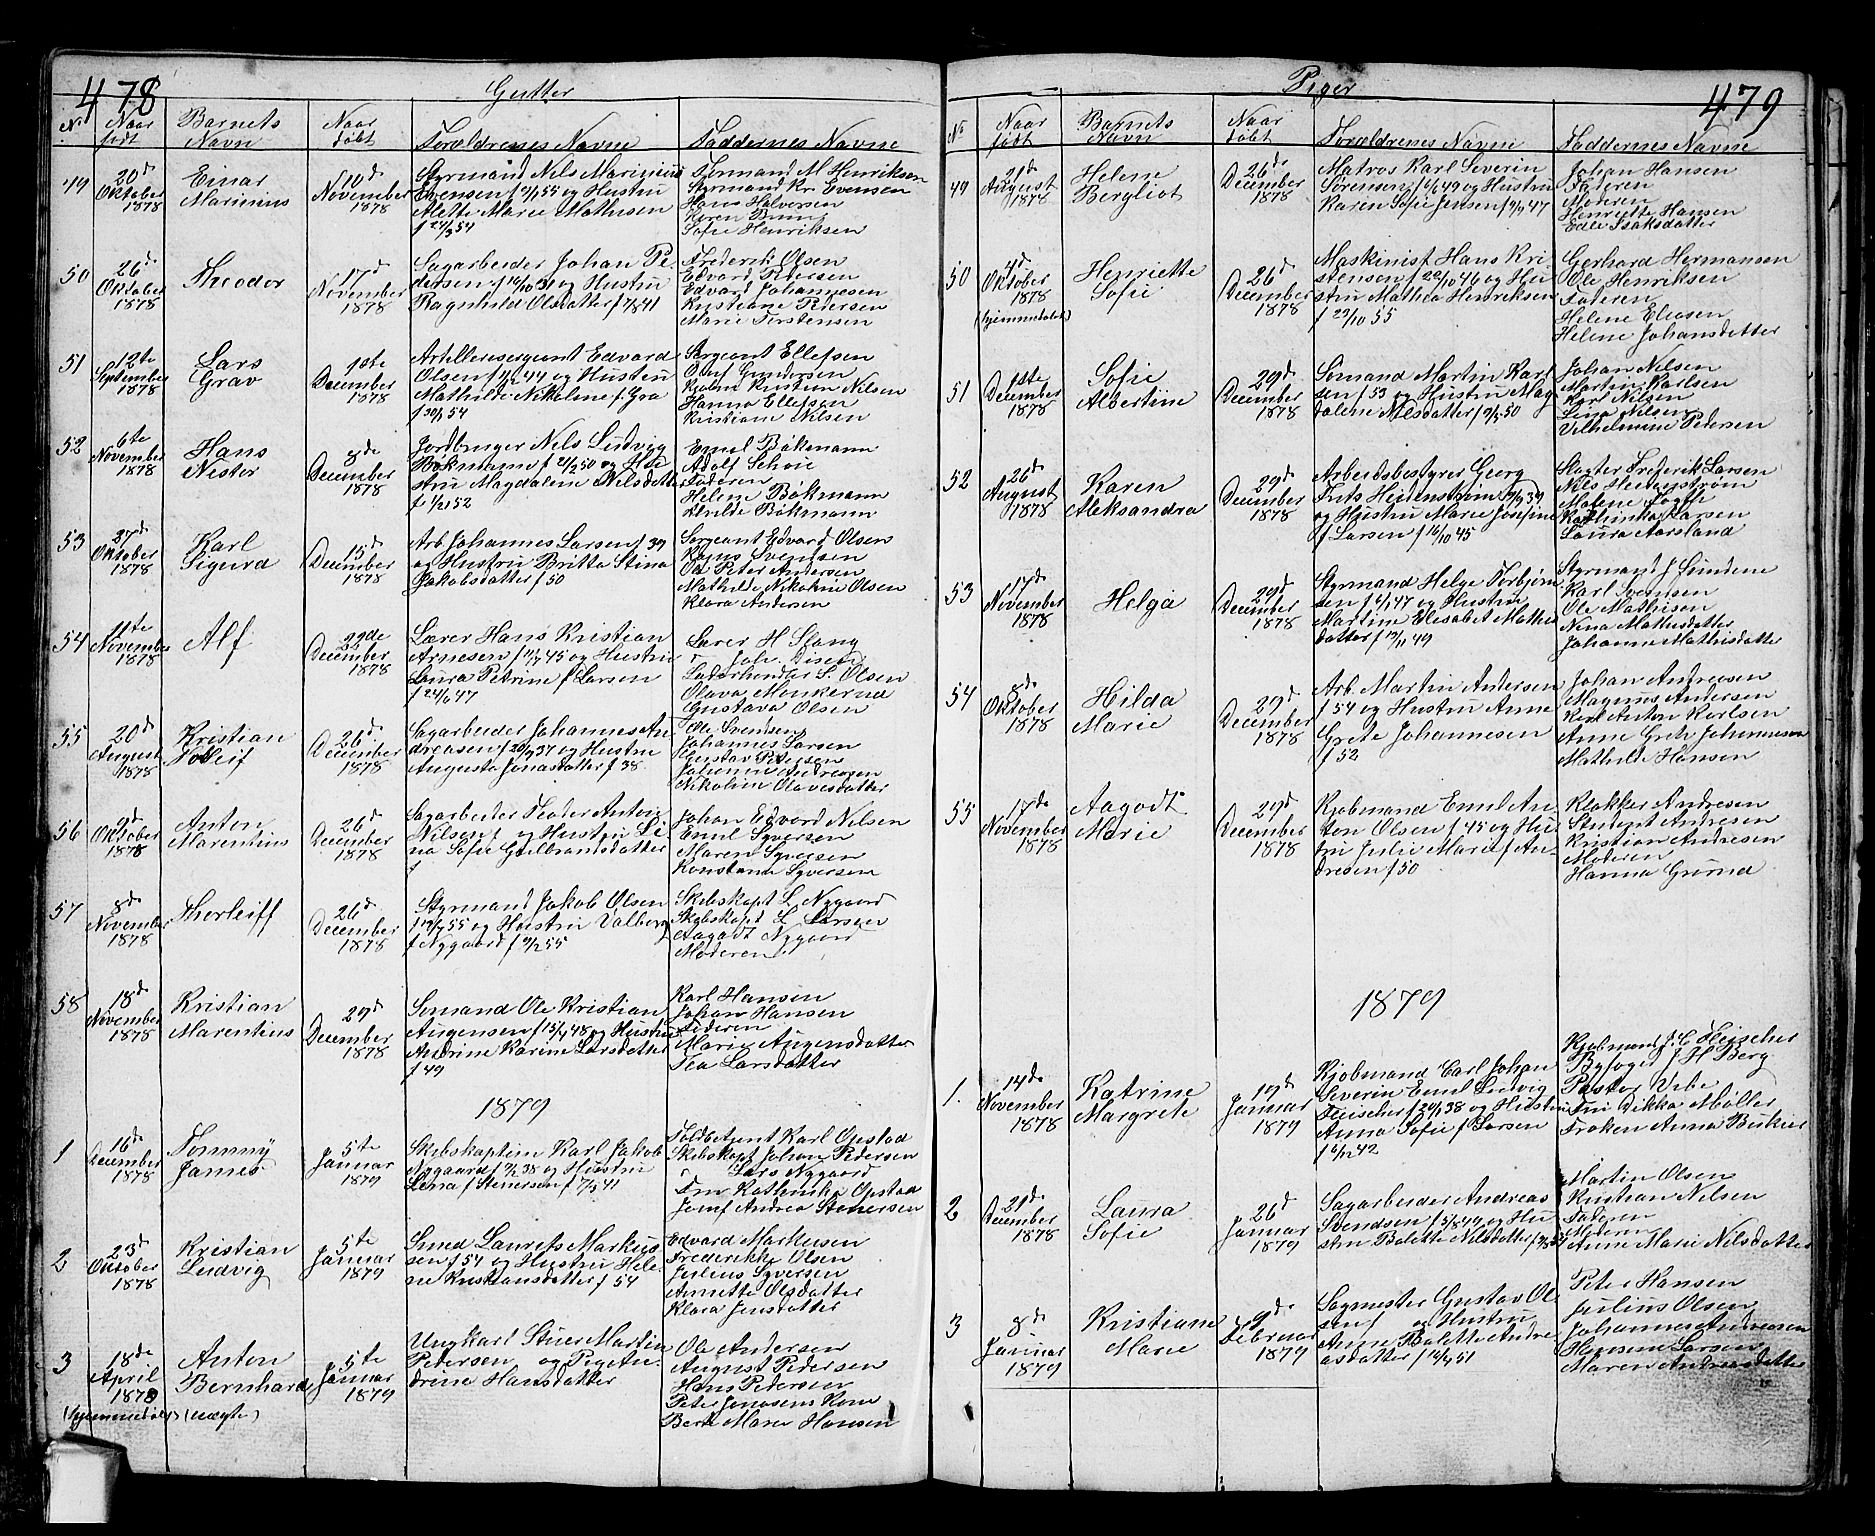 478
Gutter
No
Naar født
Barnets Navn
Naar døbt
Forældrenes Navne
Faddernes Navne
49
20d Oktober 1878
Einar Marinius
10d November 1878
Styrmand Nils Marinius
Evensen f 55 og Hustru
Mette Marie Mathisen
f 54
Formand M Henriksen
Styrmand Kr. Evensen
Hans Halversen
Karen Bruun
Sofie Henriksen
50
26d Oktober 1878
Theodor
17d November 1878
Sagarbeider Johan Pe
dersen f 19/10 31 og Hustru
Ragnhild Olsdatter f 7/8 41
Frederik Olsen
Edvard Pedersen
Edvard Johannesen
Kristiane Pedersen
Marie Torstensen
51
12te September 1878
Lars Grav
1ste December 1878
Artillerisergeant Edvard
Olsen f 44 og Hustru
Mathilde Nikoline f Gra
f 30/1 54
Sergeant Ellefsen
Oluf Gundersen
Kristian Nilsen
Hanna Ellefsen
Kristiane Nilsen
52
6te November 1878
Hans Nestor
8de December 1878
Jordbruger Nils Ludvig
Bökmann f 2/2 50 og Hu
stru Magdalene Nilsdatter
f 1/2 52
Emil Bökmann
Adolf Schøie
Faderen
Helene Bökmann
Hvilde Bökmann
53
27d Oktober 1878
Karl Sigurd
15d December 1878
Arb Johannes Larsen f 39
og Hustru Britta Stina
Jakobsdatter f 50
Sergeant Edvard Olsen
Hans Svendsen
Ole Peter Andersen
Mathilde Nikoline Olsen
Klara Andersen
54
11te November 1878
Alf
22de December 1878
Lærer Hans Kristian
Arnesen f 11/7 45 og Hustru
Laura Petrine f Larsen
f 24/6 47
Lærer H Stang
Joh. Disen
Læderhandler L. Olsen
Olava Menkerud
Gustava Olsen
55
20d August 1878
Kristian Tolleif
26d December 1878
Sagarbeider Johannes An
dreasen f 20/9 37 og Hustru
Augusta Jonasdatter f 38.
Ole Svendsen
Johannes Larsen
Gustav Pedersen
Johanne Andresen
Nikoline Olavesdatter
56
9d Oktober 1878
Anton Marentius
26d December 1878
Sagarbeider Teodor Anton
Nilsen f og Hustru Li
na Sofie Gulbransdatter
f
Johan Edvard Nilsen
Emil Syversen
Maren Syversen
Konstanse Syversen
57
8de November 1878
Thorleiff
26d December 1878
Styrmand Jakob Olsen
f 19/7 55 og Hustru Valborg
f Nygaard f 9/12 55
Skibskapt L. Nygaard
Skibskapt L Larsen
Aagodt Nygaard
Moderen
58
18d November 1878
Kristian Marentius
29d December 1878
Sømand Ole Kristian
Augensen f 15/4 48 og Hustru
Andrine Karine Larsdatter
f 49
Karl Hansen
Johan Hansen
Faderen
Marie Augensdatter
Tea Larsdatter
1879
1
16d December 1878
Tommy James
5te Januar 1879
Skibskaptein Karl Jakob
Nygaard f 9/2 38 og Hustru
Lena f Stenersen f 7/3 41
Toldbetjent Karl Opstad
Skibskapt Johan Pedersen
Lars Nygaard
Fru Kathinka Opstad
Jomf Andrea Stenersen
2
23d Oktober 1878
Kristian Ludvig
5te Januar 1879
Smed Laurets Markus
sen f 54 og Hustru Hele
ne Kristiansdatter f 54
Edvard Markusen
Frederikke Olsen
Julius Syversen
Annette Olsdatter
Klara Jensdatter
3
18de April 1878
(hjemmedøbt) (uægte)
Anton Bernhard
5te Januar 1879
Ungkarl Sture Martin
Pedersen og Pige An
drine Hansdatter
Ole Andersen
August Pedersen
Hans Pedersen
Peter Jonasens Kone
Berte Marie Hansen
479
Piger
No
Naar født
Barnets Navn
Naar døbt
Forældrenes Navne
Faddernes Navne
49
21d August 1878
Helene Bergliot
26d December 1878
Matros Karl Severin
Sørensen f 6/6 49 og Hustru
Karen Sofie Jensen f 9/9 47
Johan Hansen
Faderen
Moderen
Henriette Hansen
Edle Isaksdatter
50
4d Oktober 1878
(hjemmedøbt)
Henriette Sofie
26d December 1878
Maskinist Hans Kri
stensen f 22/10 46 og Hu
stru Mathea Henriksen
f 29/10 55
Gerhard Hermansen
Ole Henriksen
Faderen
Helene Eliasen
Helene Johansdatter
51
1ste December 1878
Sofie Albertine
29d December 1878
Sømand Martin Karl
sen f 53 og Hustru Mag
dalene Nilsdatter f 9/3 50
Johan Nilsen
Martin Karlsen
Karl Nilsen
Lina Nilsen
Vilhelmine Pedersen
52
26d August 1878
Karen Aleksandra
29d December 1878
Arbeidsbestyrer Georg
Frits Heidenstrøm 39
og Hustru Marie Josefine
f Larsen f 16/10 45
Slagter Frederik Larsen
Nils Heidenstrøm
Malene Fogth
Kathinka Larsen
Laura Aarsland
53
17d November 1878
Helga
29d December 1878
Styrmand Helge Torbjørn
sen f 6/1 47 og Hustru
Martine Elisabet Mathis
datter f 19/11 49
Styrmand J Gundene
Karl Svendsen
Ole Mathisen
Nina Mathisdatter
Johanne Mathisdatter
54
8de Oktober 1878
Hilda Marie
29d December 1878
Arb. Martin Andersen
f 54 og Hustru Anne
Grete Johannesen
f 52
Johan Andresen
Magnus Andersen
Karl Anton Karlsen
Anne Grete Johannesen
Mathilde Hansen
55
17de November 1878
Aagodt Marie
29d December 1878
Kjøbmand Emil An
ton Olsen f 45 og Hu
stru Julie Marie f An
dresen f 50
Klokker Andresen
Student Andresen
Kristian Andresen
Moderen
Hanna Grurud
1879
1.
14de November 1878
Katrine Margrete
19d Januar 1879
Kjøbmand Carl Johan
Severin Emil Ludvig
Fleischer f 20/1 38 og Hustru
Anna Sofie f Larsen
f 6/12 42
Kjøbmand J. C Fleischer
Byfoged J H Berg
Pastor Vibe
Fru Dikka Møller
Frøken Anna Birkeier
2
21de December 1878
Laura Sofie
26d Januar 1879
Sagarbeider Andreas
Svendsen f 5/8 49 og Hu
stru Bolette Nilsdatter
Martin Olsen
Kristian Nilsen
Faderen
Moderen
Anne Marie Nilsdatter
3
8de Januar 1879
Kristiane Marie
9de Februar 1879
Sagmester Gustav Ol
sen f og Hustru
Anne Bolette Andre
asdatter f 16/9 51
Peter Hansen
Julius Olsen
Johannes Andreasen
Hansine Larsen
Maren Andreasdatter